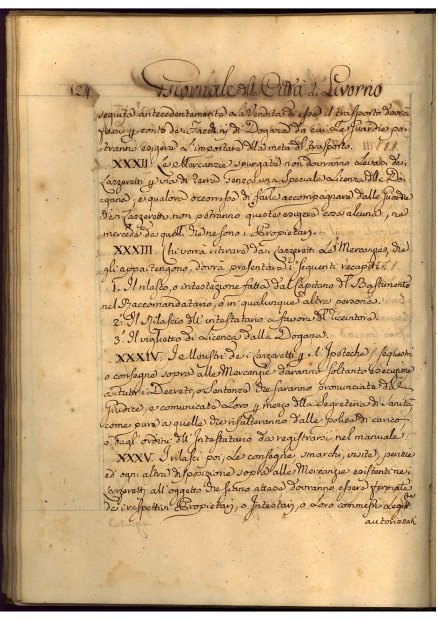 124 Giornale della Città di Livorno
seguita antecedentemente a la Vendita di essa il trasporto dovrà
farsi p conto dei Facchini di Dogana da cui le Guardie po-
tranno esigere l'importare della metà del trasporto.
XXXII. Le Mercanzie spurgate non dovranno levarsi da i
Lazzeretti p via di terra senza una speciale Licenza della Do-
gana, e qualora occorresse di farle accompagnare dalle Guardie
de Lazzeretti non potranno queste esigere cosa alcuna, ne
mercede da quelli che ne sono i Propietari.
XXXIII. Chi vorrà ritirare da i Lazzeretti le Mercanzie, che
gli appartengono, dovrà presentare i seguenti recapiti.
1. Il rilascio, o intestazione fatta dal Capitano del Bastimento
nel Raccomandatario, o in qualunque altra persona.
2. Il Rilascio dell'intestatario a favore del ricevitore.
3. Il viglietto di Licenza della Dogana.
XXXIV. I Ministri de i Lazzeretti p l'Ipoteche, sequestri
o consegne sopra alle Mercanzie daranno soltanto esecuzione
a tutti i Decreti, o Sentenze che saranno pronunciate dal
Giudice, e comunicate Loro p mezzo della Segreteria di Sanità
come pure a quelle che risulteranno dalle polizze di carico,
o dagli ordini dell'Intestatario da registrarsi nel manuale.
XXXV. I rilasci poi, le consegne, smarchi, visite,
ed ogni altra disposizione sopra alle Mercanzie esistenti ne i
Lazzeretti all'oggetto che siano attese dovranno essere firmate
da i respettivi Propietarj, o Intestarj, o Loro commessi Legit.
autorizati